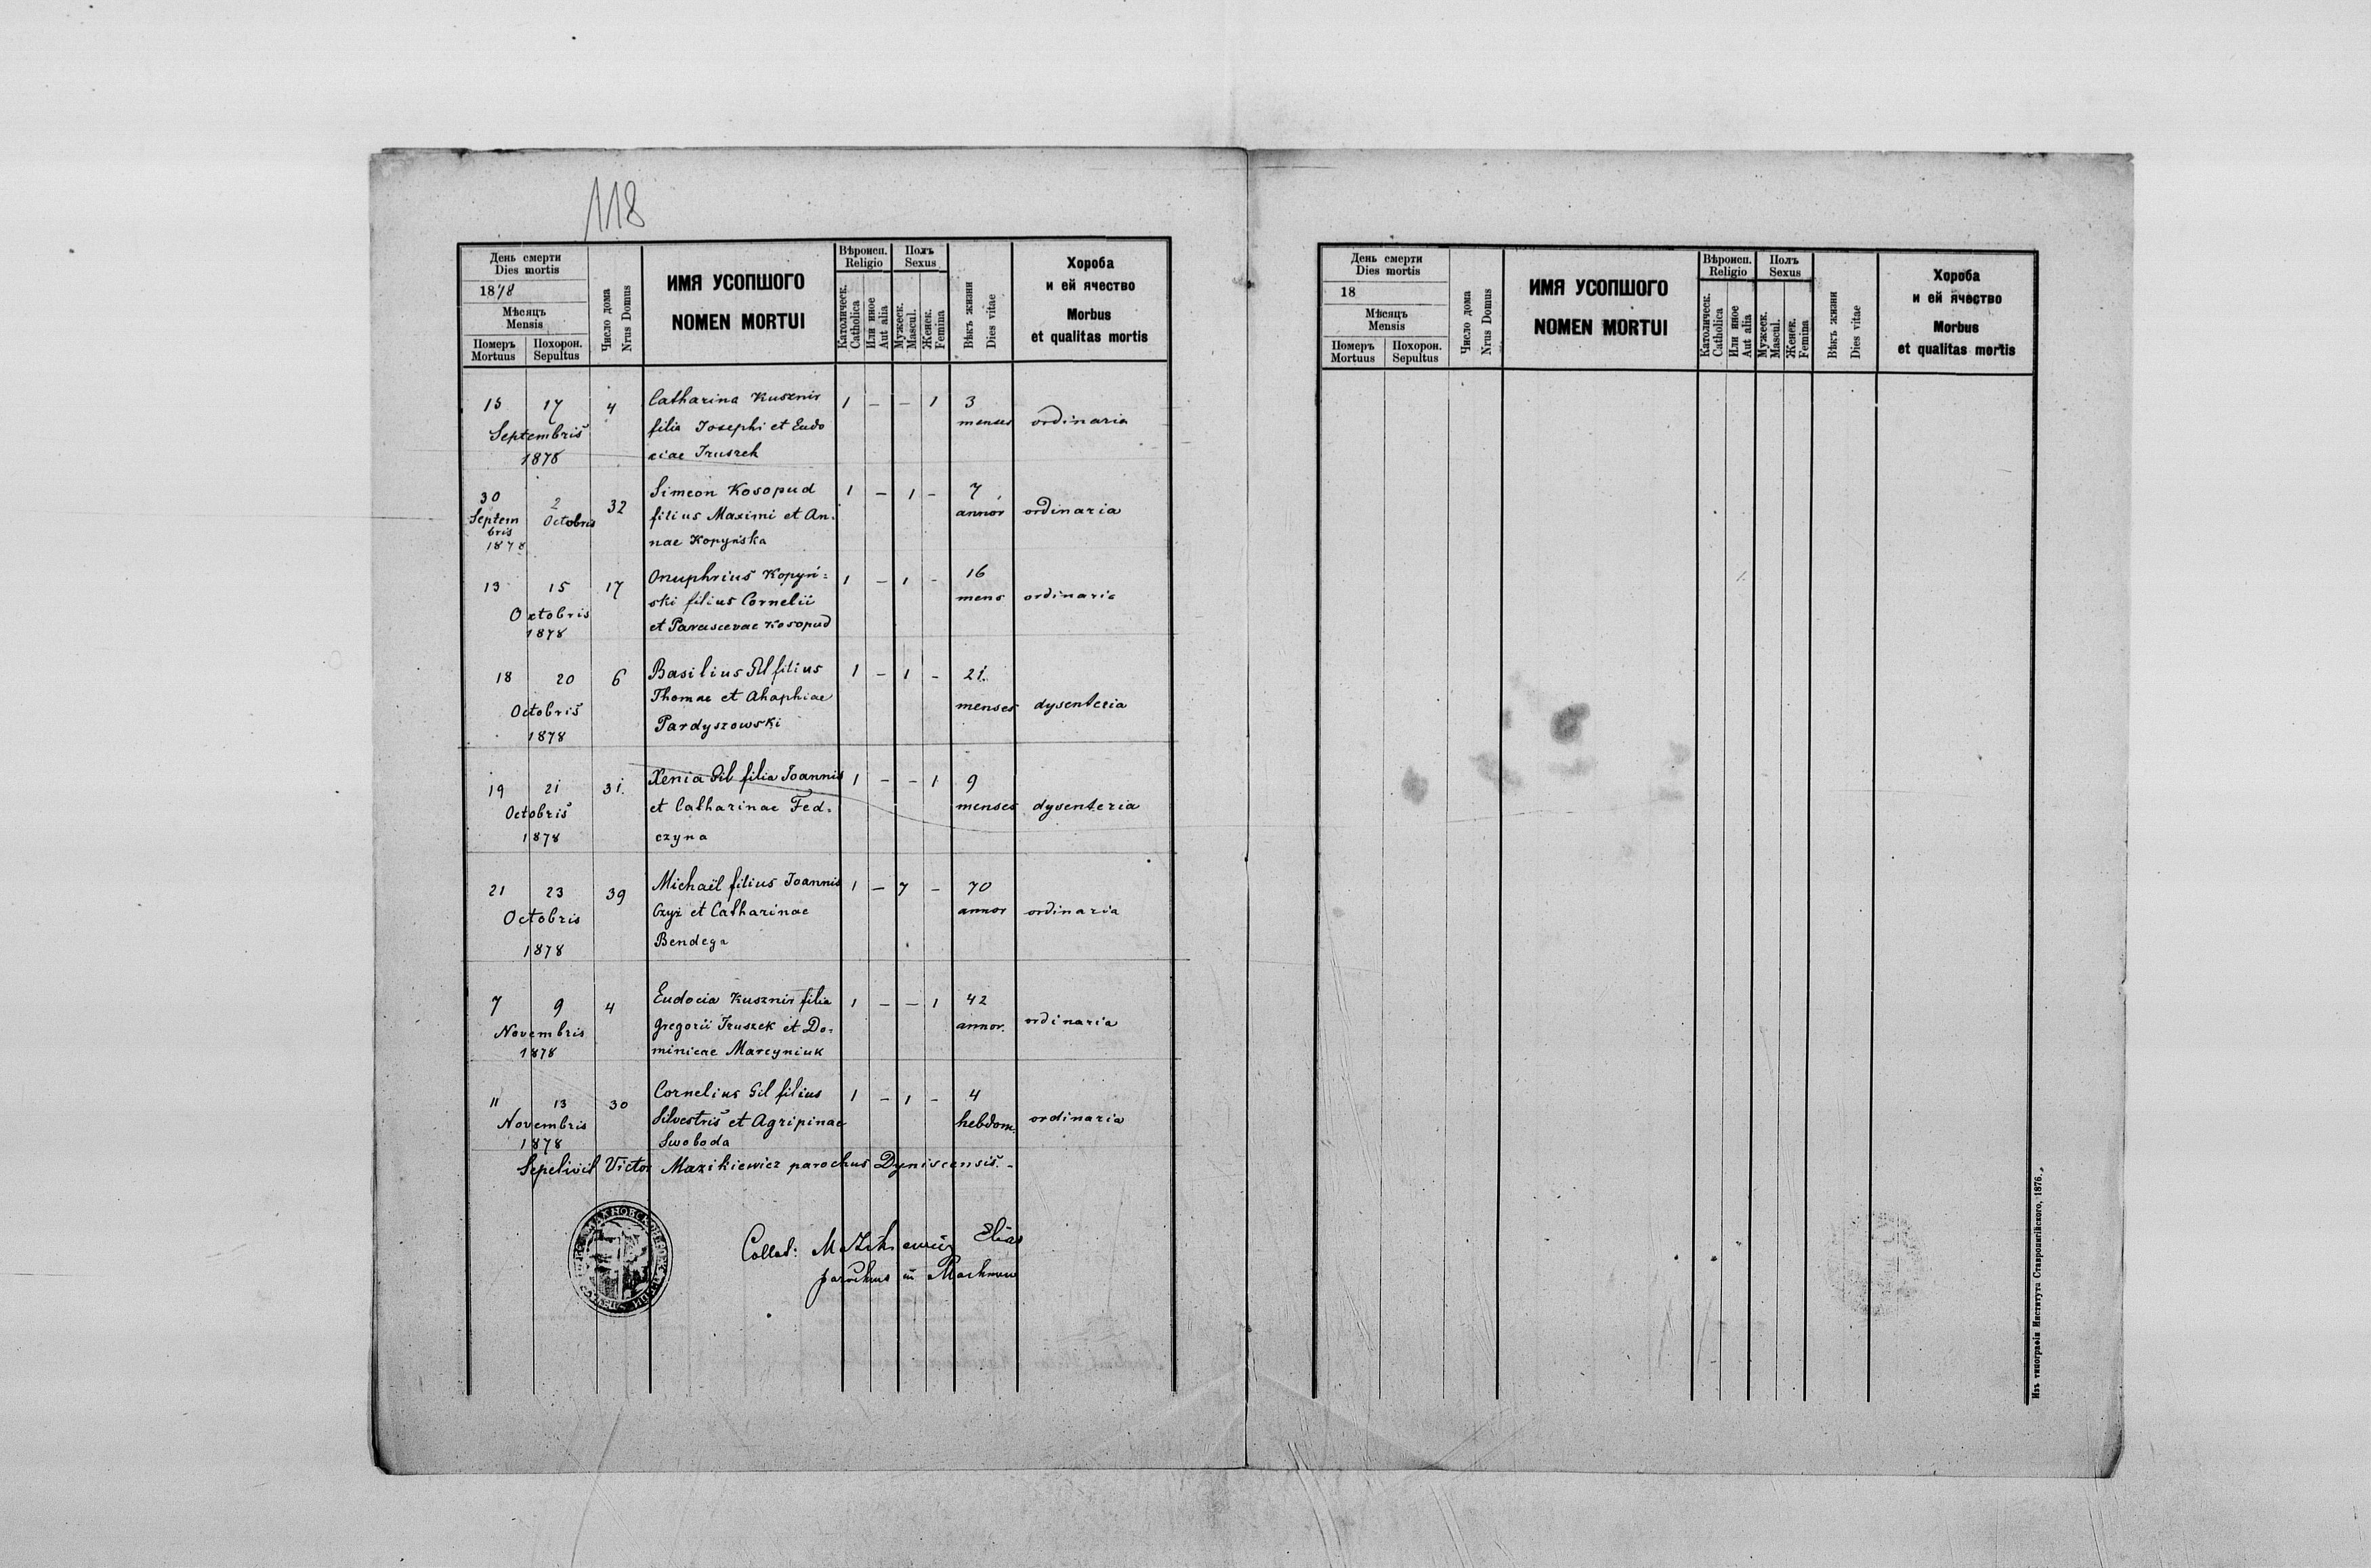 118
День смерти
Dies mortis
1878
Мѣсяцъ
Mensis
Померъ Похорон.
Mortuus Sepultus
Число дома
Nrus Domus
ИМЯ УСОПШОГО
NOMEN MORTUI
Вѣроисп.
Religio
Католическ.
Catholica
Или иное
Aut alia
Полъ
Sexus
Мужеск.
Mascul.
Женск.
Femina
Вѣкъ жизни
Dies vitae
Хороба
и ей ячество
Morbus
et qualitas mortis
15 17 4 Catharina Kusznir 1 – – 1 3
Septembris filia Josephi et Eudo menses ordinaria
1878 ciae Truszek
30 2 32 Simeon Kosopud 1 – 1 – 7
Septem Octobris filius Maximi et An- annor ordinaria
bris
1878 nae Kopyńska
13 15 17 Onuphrius Kopyń= 1 – 1 – 16
Octobris ski filius Cornelii mens ordinaria
1878 et Parascevae Kosopud
18 20 6 Basilius Gil filius 1 – 1 – 21
Octobris Thomae et Ahaphiae menses dysenteria
1878 Pardyszowski
19 21 31. Xenia Gil filia Joannis 1 – – 1 9
Octobris et Catharinae Fed- menses dysenteria
1878 czyna
21 23 39 Michaël filius Joannis 1 – 1 – 70
Octobris Czyż et Catharinae annor ordinaria
1878 Bendega
7 9 4 Eudocia Kusznir filia 1 – – 1 42
Novembris Gregorii Truszek et Do- annor. ordinaria
1878 minicae Marcyniuk
11 13 30 Cornelius Gil filius 1 – 1 – 4
Novembris Silvestris et Agripinae hebdom: ordinaria
1878 Swoboda
Sepelivit Victor Mazikiewicz parochus Dyniscensis.
Collat: Mazikiewicz Elias
parochus in Machnow
День смерти
Dies mortis
18
Мѣсяцъ
Mensis
Померъ Похорон.
Mortuus Sepultus
Число дома
Nrus Domus
ИМЯ УСОПШОГО
NOMEN MORTUI
Вѣроисп.
Religio
Католическ.
Catholica
Или иное
Aut alia
Полъ
Sexus
Мужеск.
Mascul.
Женск.
Femina
Вѣкъ жизни
Dies vitae
Хороба
и ей ячество
Morbus
et qualitas mortis
Изъ типографіи Института Ставропигійского, 1876.